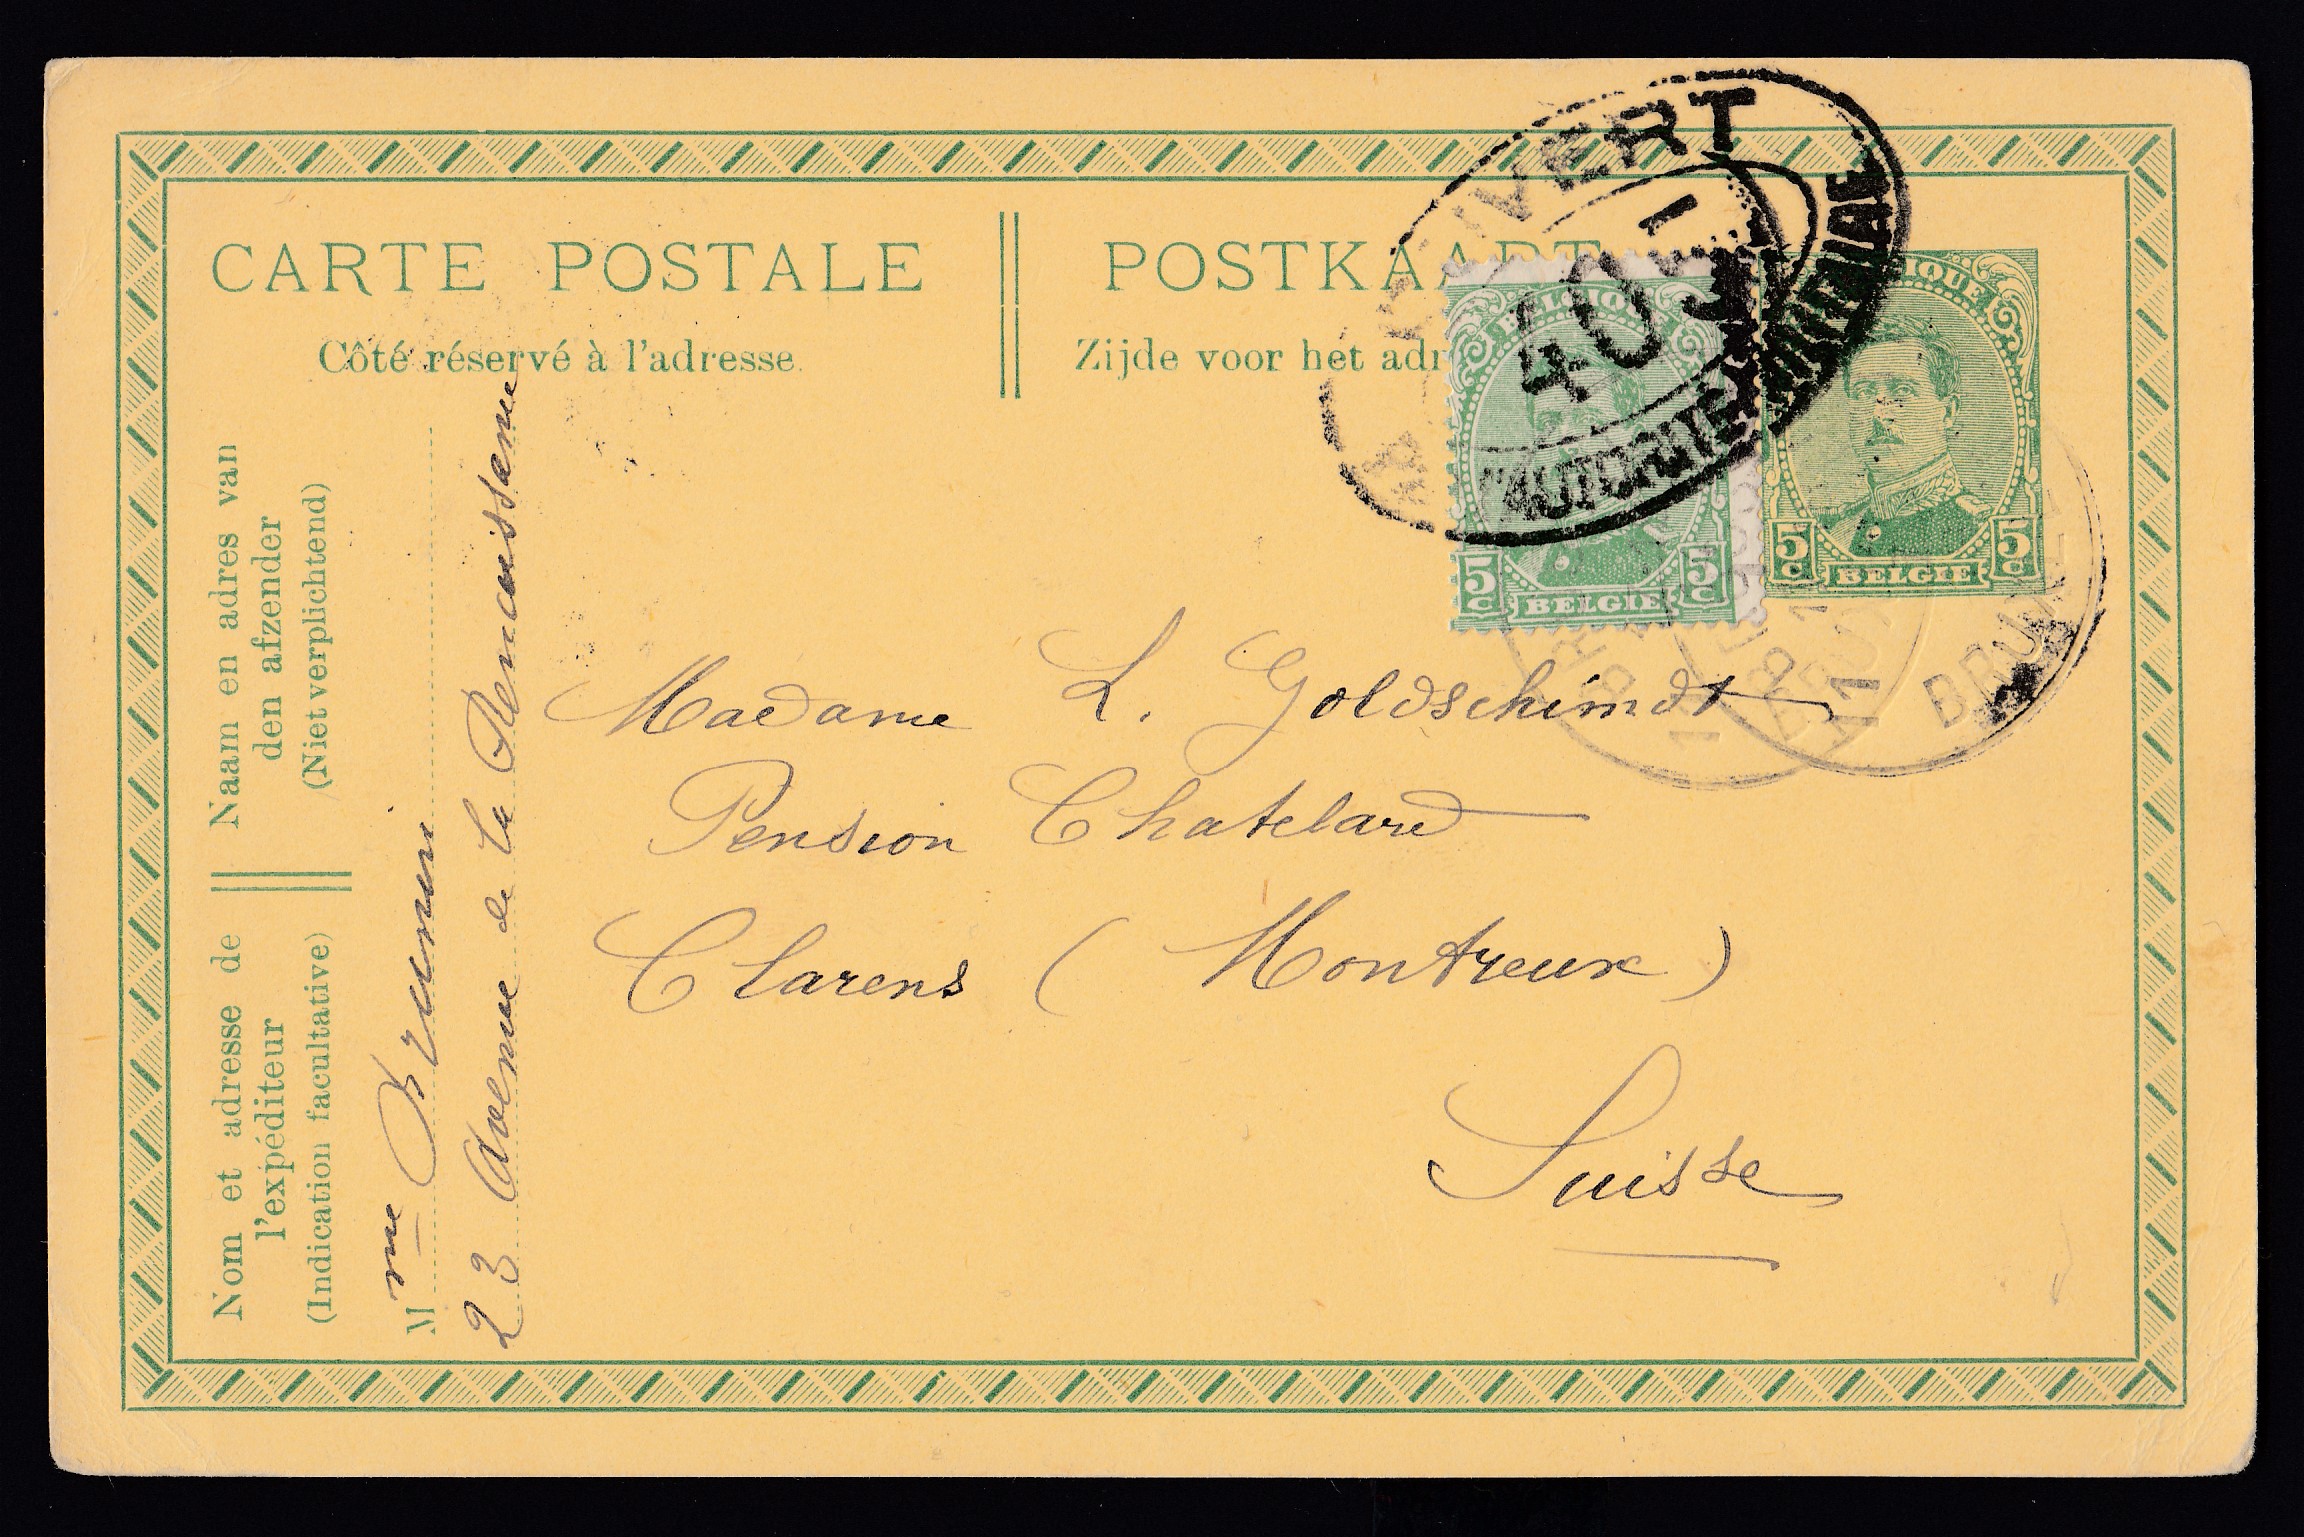 CARTE POSTALE
Côté réservé à l'adresse
POSTKAART
Zijde voor het adr
OUVERT
401
L'AUTORITÉ MILITAIRE
BELGIQUE
5c BELGIE 5c
5c BELGIE 5c
BRUX
Naam en adres van
den afzender
(Niet verplichtend)
Nom et adresse de
l'expéditeur
(Indication facultative)
Mme
23 Avenue de la Renaissance
Madame L. Goldschimdt
Pension Chatelard
Clarens (Montreux)
Suisse